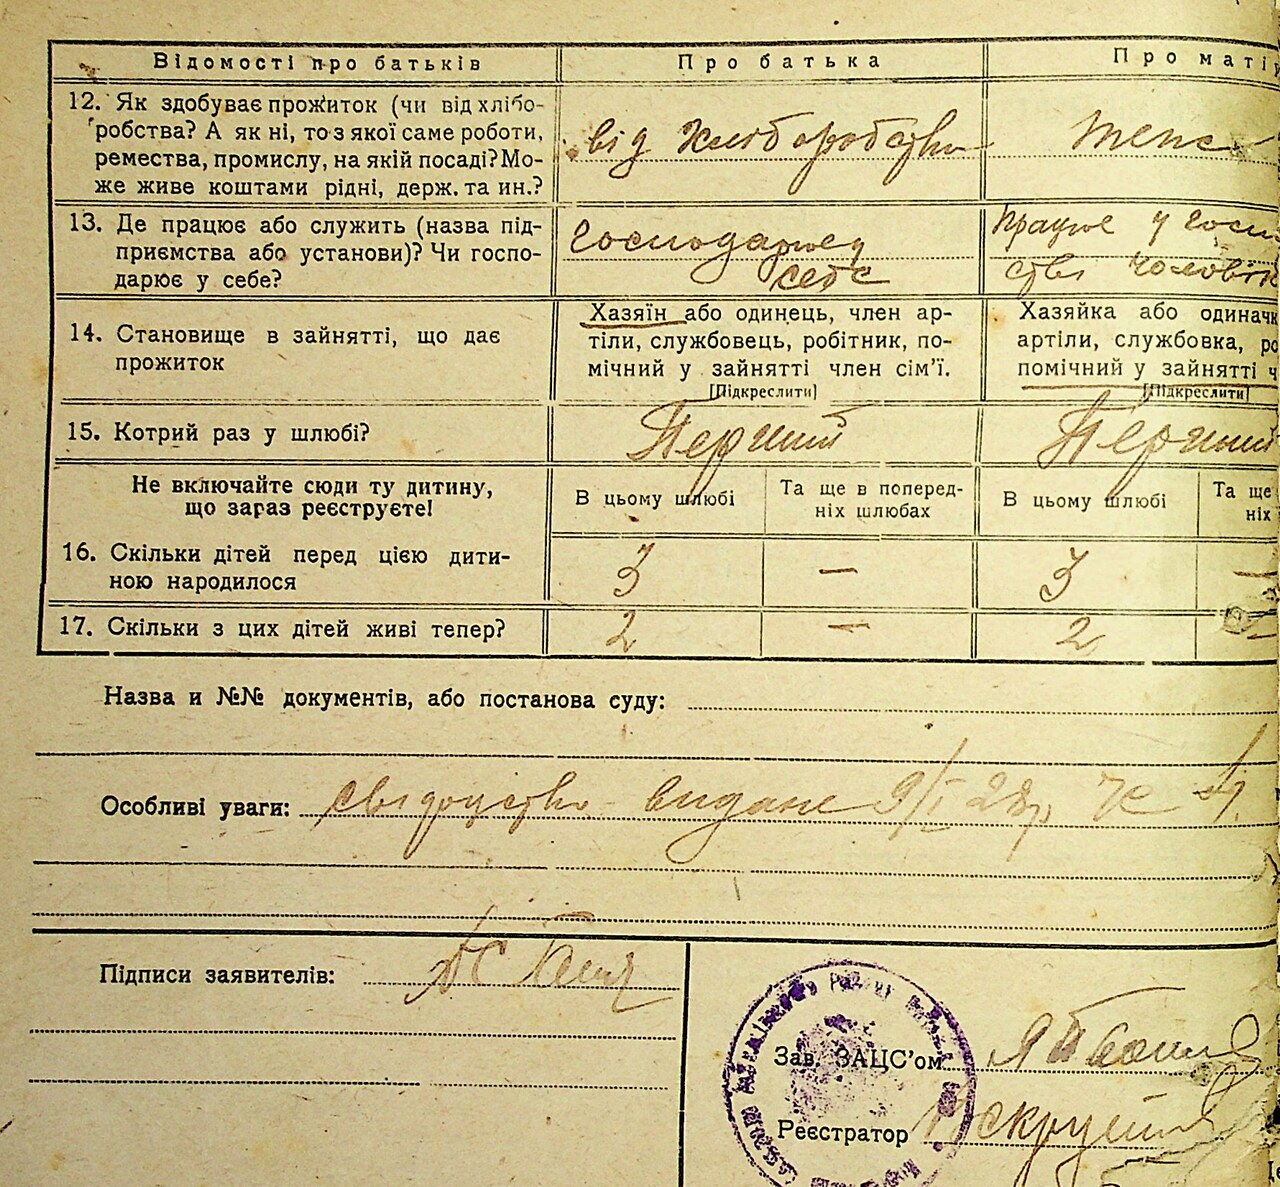 Відомості про батьків
Про батька
Про маті
12. Як здобуває прожиток (чи від хлібо-
робства? А як ні, то з якої саме роботи,
ремества, промислу, на якій посаді? Мо-
же живе коштами рідні, держ. та ин.?
від хліборобства
13. Де працює або служить (назва під-
приємства або установи)? Чи госпо-
дарює у себе?
Господарює у
себе
працює у госп
стві чоловік
14. Становище в зайнятті, що дає
прожиток
Хазяїн або одинець, член ар-
тіли, службовець, робітник, по-
мічний у зайнятті член сім'ї.
[Підкреслити]
Хазяйка або одиначк
артіли, службовка, ро
помічний у зайнятті ч
[Підкреслити]
15. Котрий раз у шлюбі?
Перший
Перший
Не включайте сюди ту дитину,
що зараз реєструєте!
В цьому шлюбі
Та ще в поперед-
ніх шлюбах
В цьому шлюбі
Та ще
ніх
16. Скільки дітей перед цією дити-
ною народилося
3
—
3
—
17. Скільки з цих дітей живі тепер?
2
—
2
Назва и №№ документів, або постанова суду:
Особливі уваги: свідоцтво видане 9/I 28р
Підписи заявителів:
Зав. ЗАЦС'ом
Реєстратор